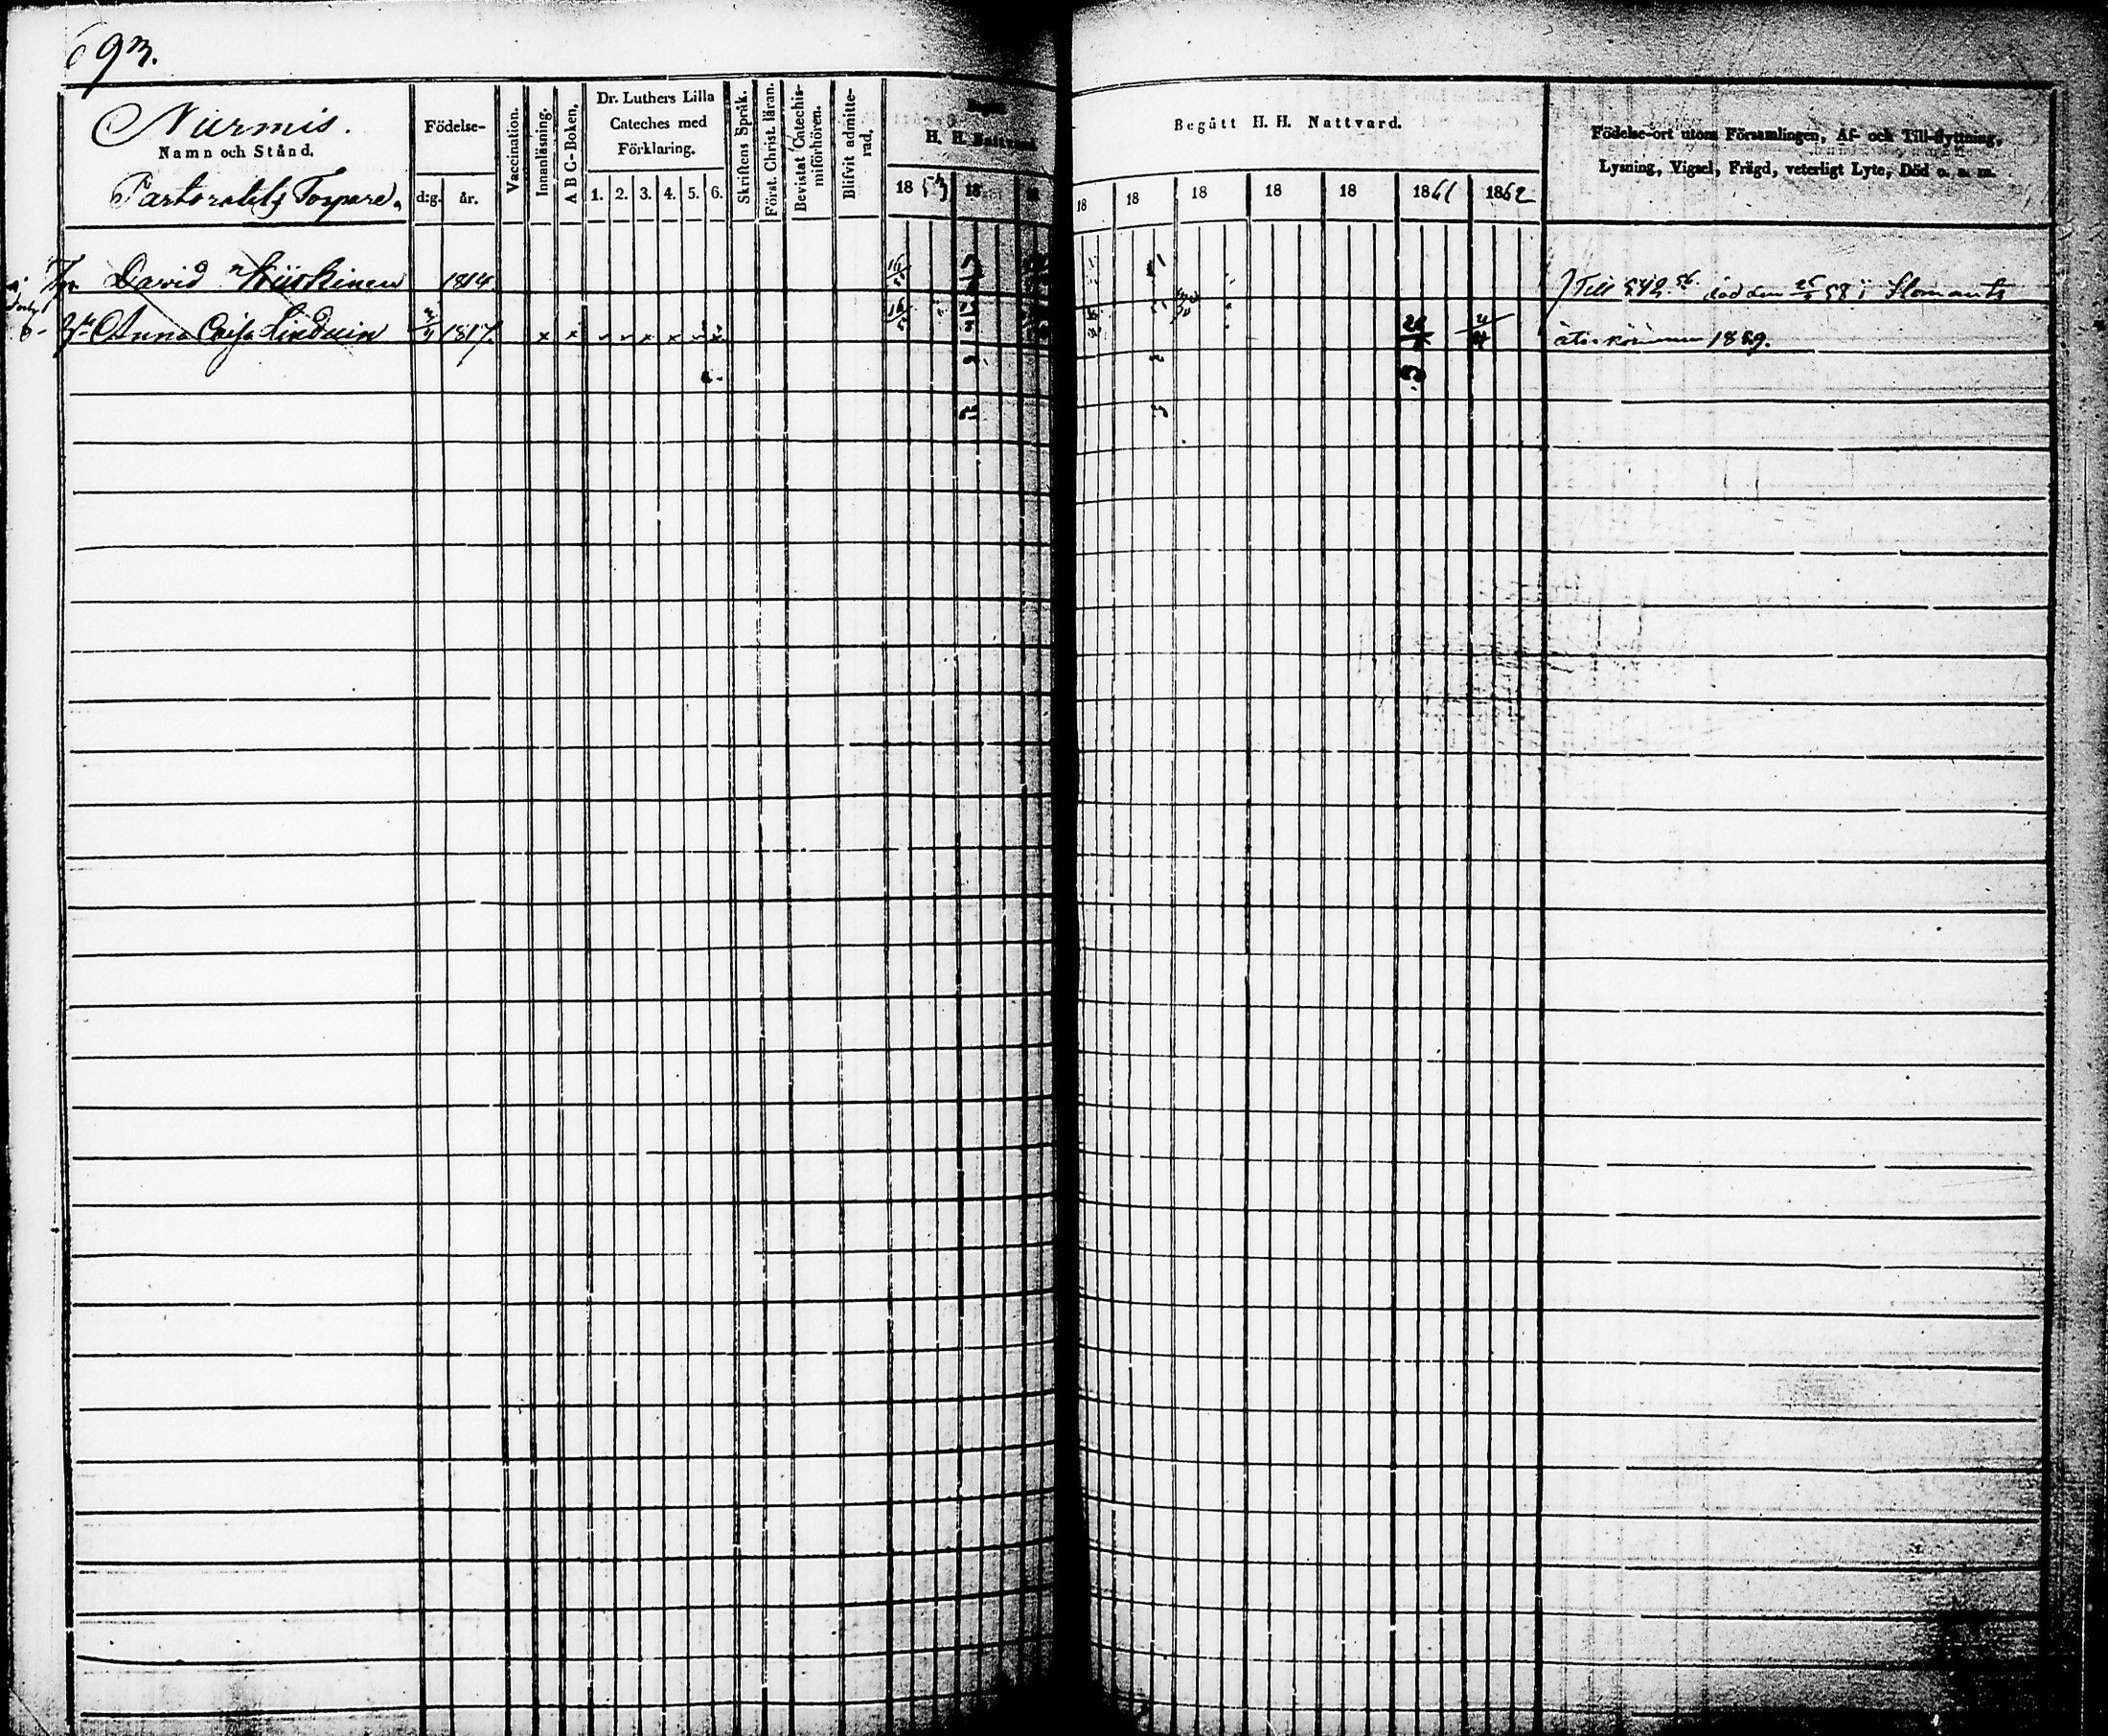 693.
Nurmis.
Namn och Stånd.
Pastoratets Torpare.
Födelse-
d:g. år.
Vaccination.
Innanläsning.
A B C-Boken.
Dr. Luthers Lilla
Cateches med
Förklaring.
1. 2. 3. 4. 5. 6.
Skriftens Språk.
Först. Christ. läran.
Bevistat Catechis-
miförhören.
Blifvit admitte-
rad,
Begått
H. H. Nattvard
18 53 18
Begått H. H. Nattvard.
18 18 18 18 18 1861 1862
Födelse-ort utom Församlingen, Af- och Till-flyttning,
Lysning, Vigsel, Frägd, veterligt Lyte, Död o. s. m.
David Kiiskinen 1814. 16/5 Till 542.56. död den 25/ 58 i Ilomants
Anna Caisa Linduin 1817. x x 16/5 återkommen 1859.